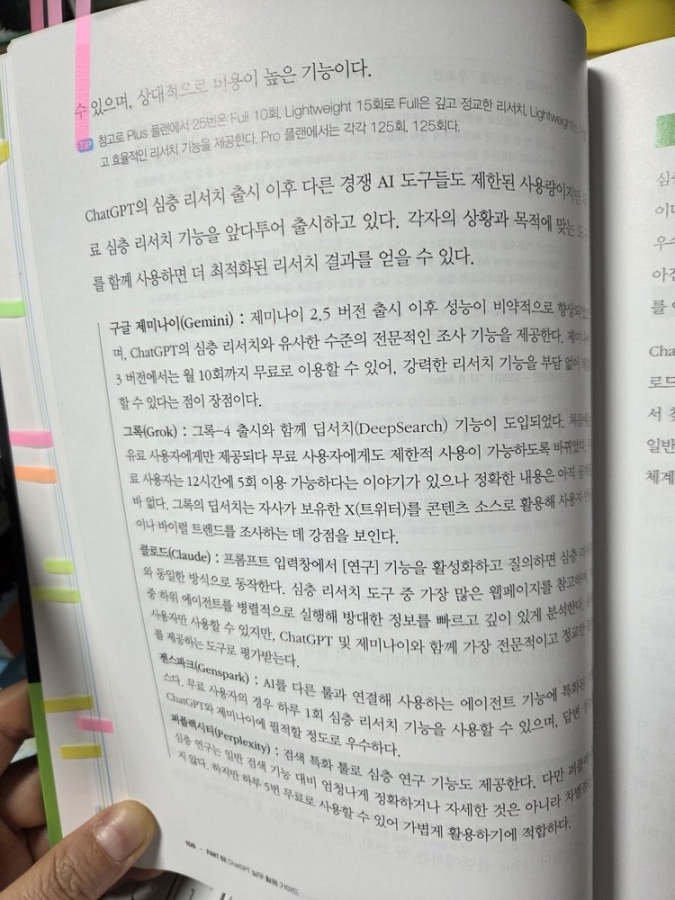 수 있으며, 상대적으로 비용이 높은 기능이다.
TIP 참고로 Plus 플랜에서 25번은 Full 10회, Lightweight 15회로 Full은 깊고 정교한 리서치, Lightweight는
고 효율적인 리서치 기능을 제공한다. Pro 플랜에서는 각각 125회, 125회다.
ChatGPT의 심층 리서치 출시 이후 다른 경쟁 AI 도구들도 제한된 사용량이지만
료 심층 리서치 기능을 앞다투어 출시하고 있다. 각자의 상황과 목적에 맞는
를 함께 사용하면 더 최적화된 리서치 결과를 얻을 수 있다.
구글 제미나이(Gemini) : 제미나이 2.5 버전 출시 이후 성능이 비약적으로
며, ChatGPT의 심층 리서치와 유사한 수준의 전문적인 조사 기능을 제공한다.
3 버전에서는 월 10회까지 무료로 이용할 수 있어, 강력한 리서치 기능을 부담 없이
할 수 있다는 점이 장점이다.
그록(Grok) : 그록-4 출시와 함께 딥서치(DeepSearch) 기능이 도입되었다.
유료 사용자에게만 제공되다 무료 사용자에게도 제한적 사용이 가능하도록 바뀌었다.
료 사용자는 12시간에 5회 이용 가능하다는 이야기가 있으나 정확한 내용은 아직
바 없다. 그록의 딥서치는 자사가 보유한 X(트위터)를 콘텐츠 소스로 활용해
이나 바이럴 트렌드를 조사하는 데 강점을 보인다.
클로드(Claude) : 프롬프트 입력창에서 [연구] 기능을 활성화하고 질의하면 심층
와 동일한 방식으로 동작한다. 심층 리서치 도구 중 가장 많은 웹페이지를 참고하며,
중 하위 에이전트를 병렬적으로 실행해 방대한 정보를 빠르고 깊이 있게 분석한다.
사용자만 사용할 수 있지만, ChatGPT 및 제미나이와 함께 가장 전문적이고 정교한
를 제공하는 도구로 평가받는다.
젠스파크(Genspark) : AI를 다른 툴과 연결해 사용하는 에이전트 기능에 특화된
스다. 무료 사용자의 경우 하루 1회 심층 리서치 기능을 사용할 수 있으며, 답변
ChatGPT와 제미나이에 필적할 정도로 우수하다.
퍼플렉시티(Perplexity) : 검색 특화 툴로 심층 연구 기능도 제공한다. 다만
심층 연구는 일반 검색 기능 대비 엄청나게 정확하거나 자세한 것은 아니라
지 않다. 하지만 하루 5번 무료로 사용할 수 있어 가볍게 활용하기에 적합하다.
PART 02. ChatGPT 실무 활용 가이드
우수
아진
를
Cha
로드
서
일반
체계